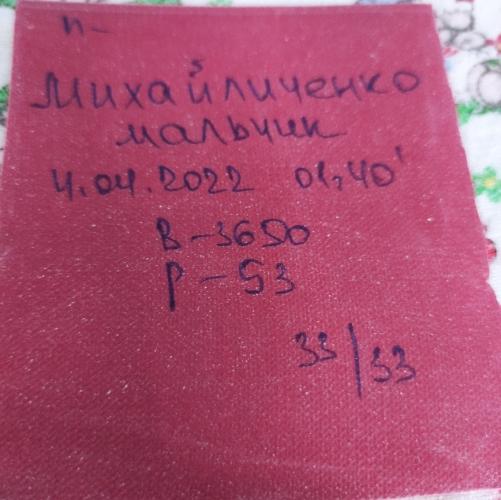 п-
Михайличенко
мальчик
4.04.2022 01,40'
В-3650
Р-53
33/33